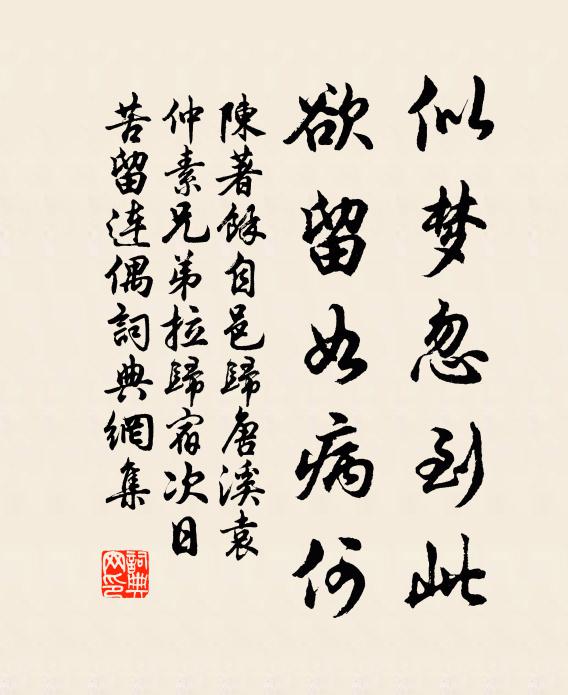 似梦忽到此
欲留如病何
陳著餘自邑歸唐溪袁
仲素兄弟拉歸宿次日
苦留連偶詞典網集
詞典
网印